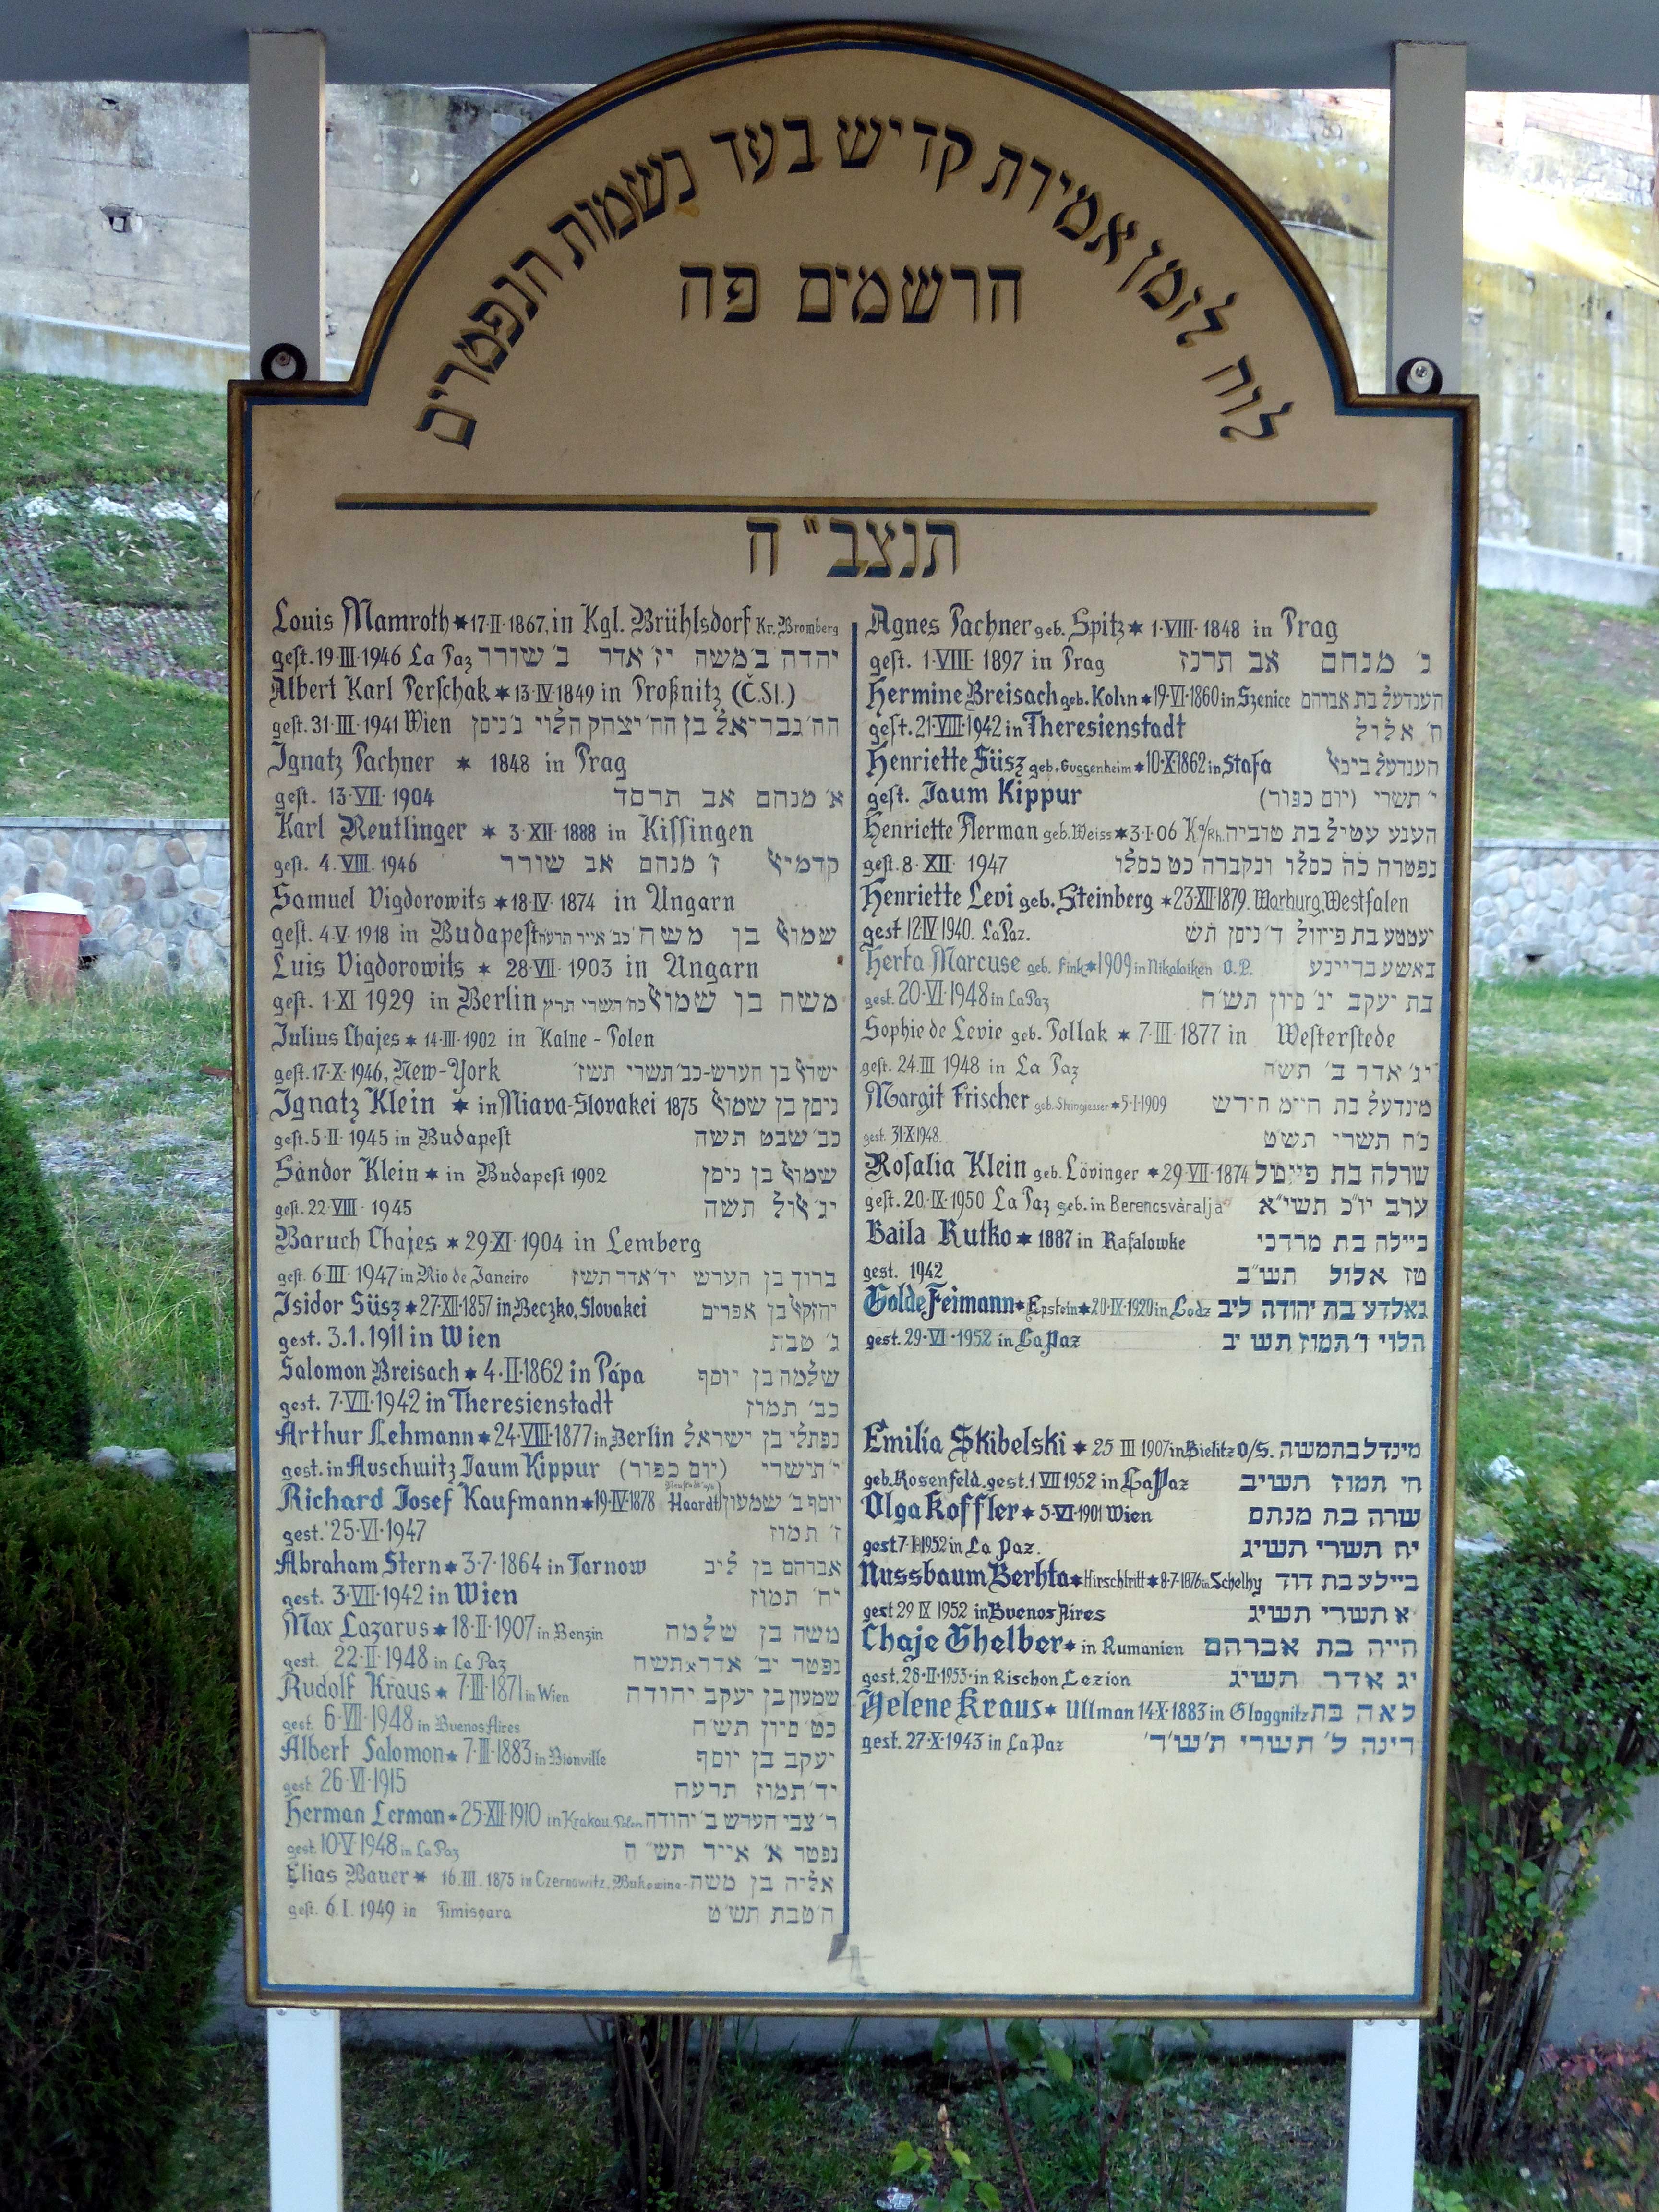 לוח לזמן אמירת קדיש בעד נשמות הנפטרים
הרשמים פה
תנצב"ה
Louis Mamroth * 17·II·1867, in Kgl. Brühlsdorf Kr. Bromberg
gest. 19·III·1946 La Paz יהדה ב׳משה יז׳אדר ב׳ שורר
Albert Karl Perschak * 13·IV·1849 in Proßnitz (Č.Sl.)
gest. 31·III·1941 Wien הח׳גבריאל בן הח׳יצחק הלוי ג׳ניסן
Ignatz Pachner * 1848 in Prag
gest. 13·VII·1904 א׳ מנחם אב תרסד
Karl Reutlinger * 3·XII·1888 in Kissingen
gest. 4·VIII·1946 ז׳ מנחם אב שורר
Samuel Vigdorowits * 18·IV·1874 in Ungarn
gest. 4·V·1918 in Budapest שמואל בן משה כב׳ אייר תרעה
Luis Vigdorowits * 28·VII·1903 in Ungarn
gest. 1·XI 1929 in Berlin משה בן שמואל כח׳תשרי תרץ
Julius Chajes * 14·III·1902 in Kalne - Polen
gest. 17·X·1946, New-York ישראל בן הערש-כב׳תשרי תשז׳
Ignatz Klein * in Miava-Slovakei 1875 ניסן בן שמואל
gest. 5·II·1945 in Budapest כב׳ שבט תשה
Sándor Klein * in Budapest 1902 שמואל בן ניסן
gest. 22·VIII·1945 יג׳ אלול תשה
Baruch Chajes * 29·XI·1904 in Lemberg
gest. 6·III·1947 in Rio de Janeiro ברוך בן הערש יד׳אדר תשז
Isidor Süsz * 27·XII·1857 in Beczko, Slovakei יחזקאל בן אפרים
gest. 3.1.1911 in Wien ג׳ טבת
Salomon Breisach * 4·II·1862 in Pápa שלמה בן יוסף
gest. 7·VII·1942 in Theresienstadt כב׳ תמוז
Arthur Lehmann * 24·VIII·1877 in Berlin נפתלי בן ישראל
gest. in Auschwitz Jaum Kippur י׳תישרי (יום כפור)
Richard Josef Kaufmann * 19·IV·1878 Haardt יוסף ב׳ שמעון
gest. 25·VI·1947 ז׳ תמוז
Abraham Stern * 3·7·1864 in Tarnow אברהם בן ליב
gest. 3·VII·1942 in Wien יח׳ תמוז
Max Lazarus * 18·II·1907 in Benzin משה בן שלמה
gest. 22·II·1948 in La Paz נפטר יב׳ אדר א׳תשח
Rudolf Kraus * 7·III·1871 in Wien שמעון בן יעקב יהודה
gest. 6·VII·1948 in Buenos Aires כט׳ סיון תש״ח
Albert Salomon * 7·III·1883 in Bionville יעקב בן יוסף
gest. 26·VI·1915 יד׳תמוז תרעה
Herman Lerman * 25·XII·1910 in Krakau, Polen ר׳צבי הערש ב׳ יהודה
gest. 10·V·1948 in La Paz נפטר א׳ אייר תש״ח
Elias Bauer * 16.III.1875 in Czernowitz, Bukowina - אליה בן משה
gest. 6.I.1949 in Timisoara ה׳טבת תש״ט
Agnes Pachner geb. Spitz * 1·VIII·1848 in Prag
gest. 1·VIII·1897 in Prag ג׳ מנחם אב תרנז
Hermine Breisach geb. Kohn * 19·VI·1860 in Szenice הענדעל בת אברהם
gest. 21·VIII·1942 in Theresienstadt ח׳ אלול
Henriette Süsz geb. Guggenheim * 10·X·1862 in Stafa הענדעל
gest. Jaum Kippur י׳ תשרי (יום כפור)
Henriette Flerman geb. Weiss * 3·I·06 K°/Rh. הענע עטיל בת טוביה
gest. 8·XII·1947 נפטרה כה כסלו ונקברה כט כסלו
Henriette Levi geb. Steinberg * 23·XII·1879. Marburg, Westfalen
gest. 12·IV·1940. La Paz. יעטטע בת פייזול ד׳ניסן תש
Herta Marcuse geb. Fink * 1909 in Nikolaiken O.P. באשע בריינע
gest. 20·VI·1948 in La Paz בת יעקב יג׳ סיון תש״ח
Sophie de Levie geb. Pollak * 7·III·1877 in Westerstede
gest. 24·III 1948 in La Paz יג׳ אדר ב׳ תש״ח
Margit Frischer * 5·I·1909 מינדעל בת חיימ הירש
gest. 31·X·1948. כ״ח תשרי תש״ט
Rosalia Klein geb. Lövinger * 29·VII·1874 שרלה בת פייטל
gest. 20·IX·1950 La Paz geb. in Berencsváralja ערב יו״כ תשי״א
Baila Rutko * 1887 in Rafalowke ביילה בת מרדכי
gest. 1942 טז אלול תש״ב
Golde Feimann * Epstein * 20·IV·1920 in Lodz גאלדע בת יהודה ליב
gest. 29·VI·1952 in La Paz הלוי ו׳תמוז תש יב
Emilia Skibelski * 25 III 1907 in Bielitz O/S. מינדל בת משה
geb. Rosenfeld. gest. 1 VII 1952 in La Paz חי תמוז תשיב
Olga Koffler * 5·VI·1901 Wien שרה בת מנחם
gest 7·1952 in La Paz. יח תשרי תשיג
Nussbaum Berhta * Hirschtritt * 8·7·1876 in Schelhy ביילע בת דוד
gest 29 IX 1952 in Buenos Aires א׳ תשרי תשיג
Chaje Ghelber * in Rumanien חייה בת אברהם
gest. 28·II·1953· in Rischon Lezion יג אדר תשיג
Helene Kraus * Ullman 14·X·1883 in Gloggnitz לאה בת
gest. 27·X·1943 in La Paz דינה ל׳ תשרי ת׳ש׳ד׳